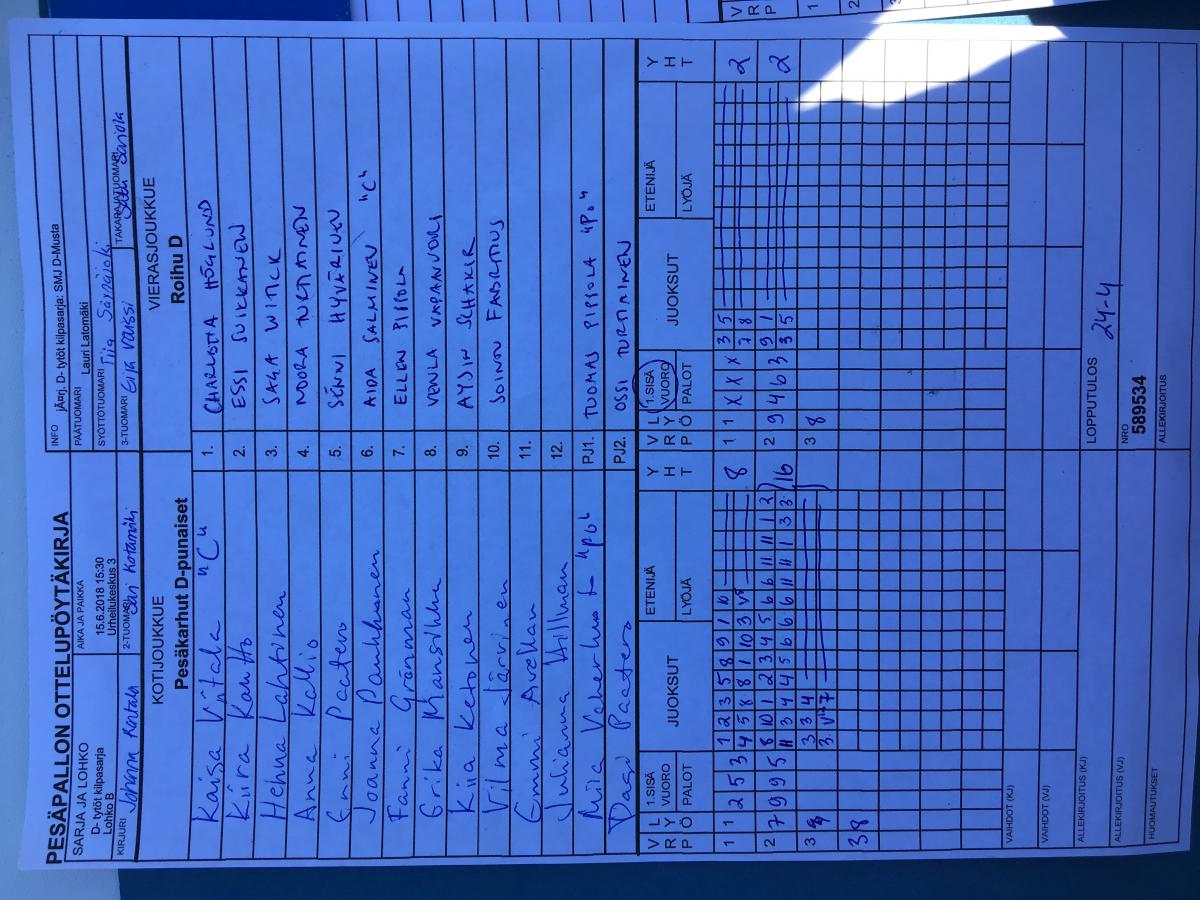 PESÄPALLON OTTELUPÖYTÄKIRJA
SARJA JA LOHKO
D- tytöt kilpasarja
Lohko B
AIKA JA PAIKKA
15.6.2018 15:30
Urheilukeskus 3
INFO
jÄrrj. D- tytöt kilpasarja: SMJ D-Musta
PÄÄTUOMARI
Lauri Latomäki
SYÖTTÖTUOMARI
KIRJURI
2-TUOMARI
3-TUOMARI
TAKARAJATUOMARI
KOTIJOUKKUE
Pesäkarhut D-punaiset
VIERASJOUKKUE
Roihu D
Kaisa Viitala "C"
1. CHARLOTTA HÖGLUND
2. ESSI SUIKKANEN
Henna Lahtinen
3. SAGA WITICK
Anna Kallio
4. NOORA TURTIAINEN
Emmi Paatero
5. SENNI HYVÄRINEN
Joanna Pankkonen
6. AIDA SALMINEN "C"
Fanni Grönman
7. ELLEN PIPSOLA
8. VENLA VAPAAVUORI
Kiia Ketonen
9. AYSIN SHAKIR
Vilma Järvinen
10. FABRITIUS
Emmi Avellan
11.
Julianna Hillman
12.
"PO"
PJ1. TUOMAS PIPSOLA "PO"
Paatero
PJ2. OSSI TURTIAINEN
V R P
L Y Ö
1.SISÄ VUORO
PALOT
JUOKSUT
ETENIJÄ
LYÖJÄ
Y H T
V R P
L Y Ö
1.SISÄ VUORO
PALOT
JUOKSUT
ETENIJÄ
LYÖJÄ
Y H T
1 1 2 5 3 1 2 3 5 8 9 1 10
8
1 1 X X X 3 5
2
4 5 8 8 1 10 3
7 8
2 7 9 9 5 8 10 1 2 3 4 5 6 6 11 11 1 2
16
2 9 4 6 3 9 1
2
11 3 4 4 5 6 6 6 11 11 1 3 3
3 5
3
3 3 4
3 8
38
VAIHDOT (KJ)
VAIHDOT (VJ)
ALLEKIRJOITUS (KJ)
LOPPUTULOS
24-4
ALLEKIRJOITUS (VJ)
NRO
589534
HUOMAUTUKSET
ALLEKIRJOITUS